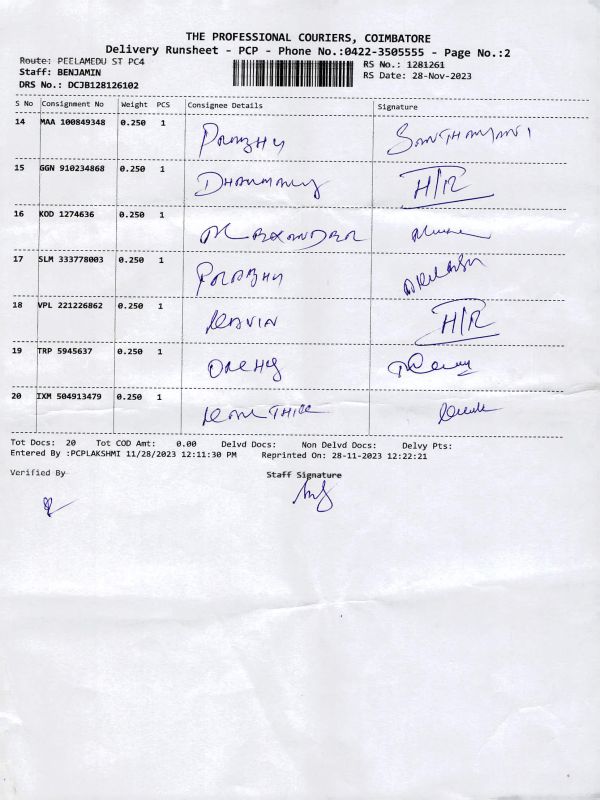 THE PROFESSIONAL COURIERS, COIMBATORE
Delivery Runsheet - PCP - Phone No.:0422-3505555 - Page No.:2
Route: PEELAMEDU ST PC4
RS No.: 1281261
Staff: BENJAMIN
RS Date: 28-Nov-2023
DRS No.: DCJB128126102
S No Consignment No Weight PCS Consignee Details Signature
14 MAA 100849348 0.250 1
15 GGN 910234868 0.250 1 H/R
16 KOD 1274636 0.250 1
17 SLM 333778003 0.250 1
18 VPL 221226862 0.250 1 KAVIN H/R
19 TRP 5945637 0.250 1
20 IXM 504913479 0.250 1
Tot Docs: 20 Tot COD Amt: 0.00 Delvd Docs: Non Delvd Docs: Delvy Pts:
Entered By :PCPLAKSHMI 11/28/2023 12:11:30 PM Reprinted On: 28-11-2023 12:22:21
Verified By Staff Signature